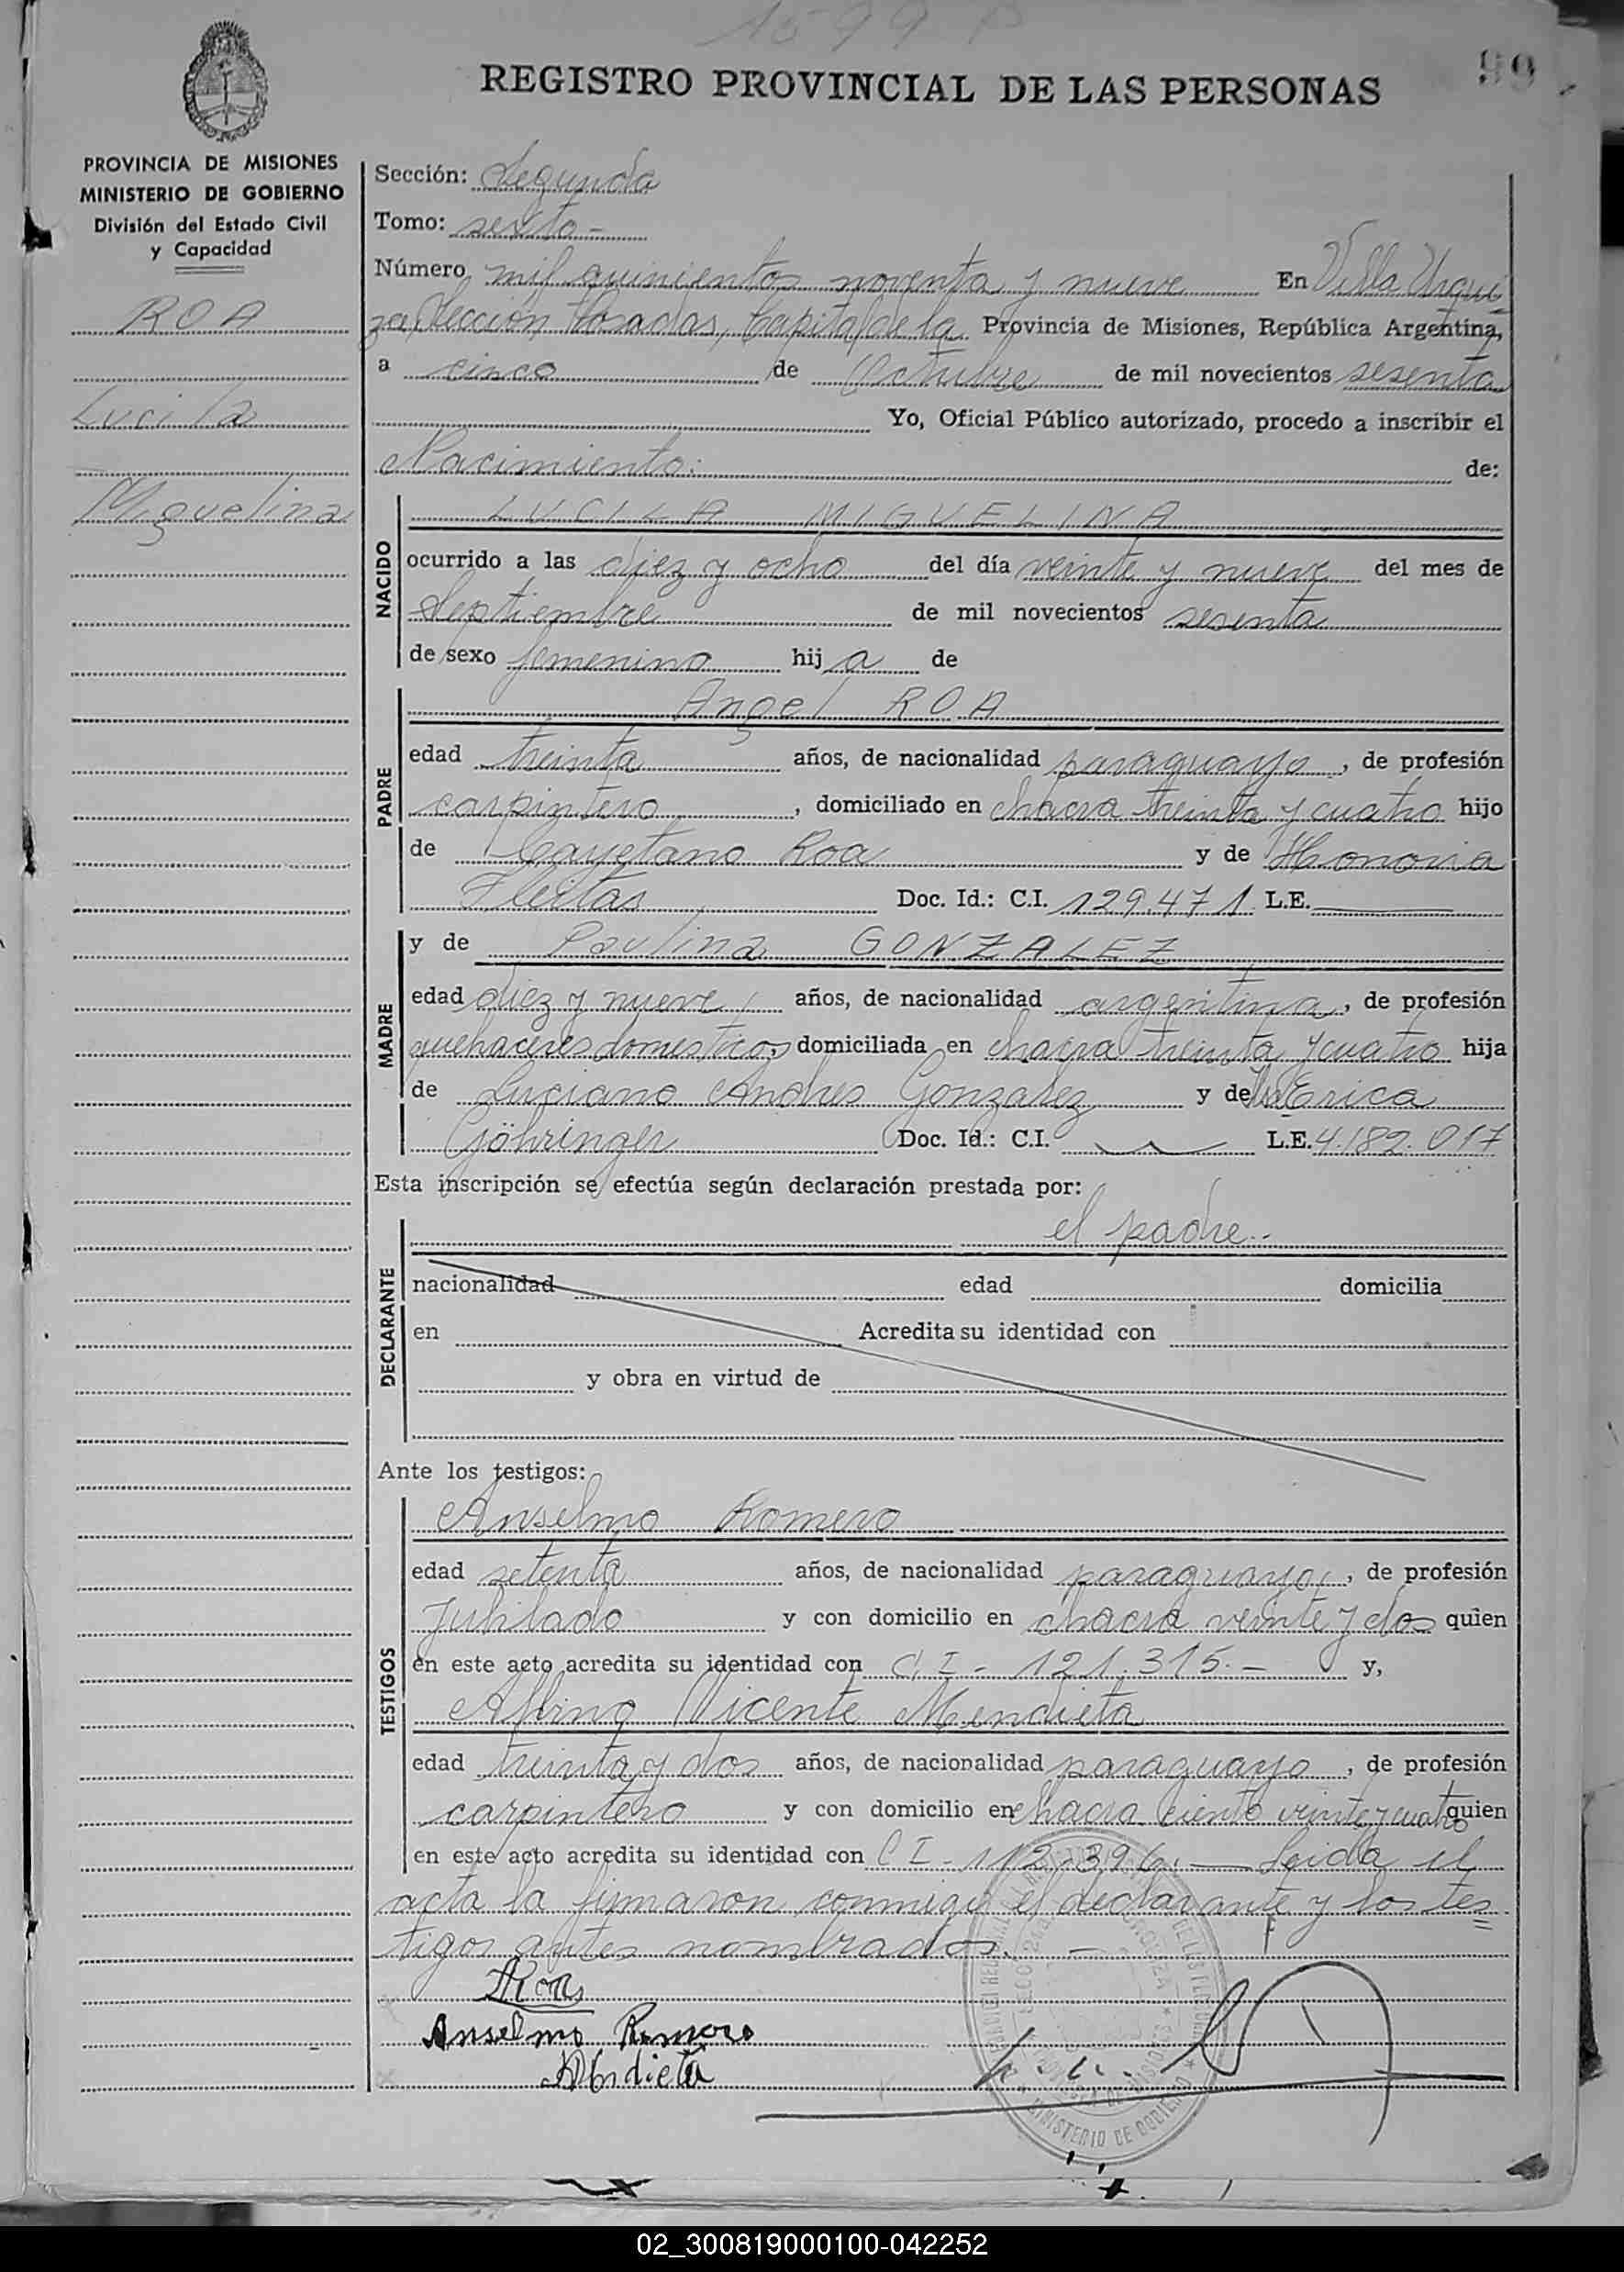 1599 P
99
REGISTRO PROVINCIAL DE LAS PERSONAS
PROVINCIA DE MISIONES
MINISTERIO DE GOBIERNO
División del Estado Civil
y Capacidad
ROA
Lucila
Miguelina
Sección: Segunda
Tomo: sexto -
Número mil quinientos noventa y nueve En Villa Urqui-
za, Sección Posadas, Capital de la Provincia de Misiones, República Argentina,
a cinco de Octubre de mil novecientos sesenta
Yo, Oficial Público autorizado, procedo a inscribir el
Nacimiento: de:
NACIDO
LUCILA MIGUELINA
ocurrido a las diez y ocho del día veinte y nueve del mes de
Septiembre de mil novecientos sesenta
de sexo femenino hija de
PADRE
Angel ROA
edad treinta años, de nacionalidad paraguayo, de profesión
carpintero, domiciliado en chacra treinta y cuatro hijo
de Cayetano Roa y de Honoria
Fleitas Doc. Id.: C.I. 129.471 L.E.
MADRE
y de Paulina GONZALEZ
edad diez y nueve años, de nacionalidad argentina, de profesión
quehaceres domesticos, domiciliada en chacra treinta y cuatro hija
de Luciano Andres Gonzalez y de Erica
Göhringer Doc. Id.: C.I. L.E. 4.182.017
Esta inscripción se efectúa según declaración prestada por:
DECLARANTE
el padre.-
nacionalidad edad domicilia
en Acredita su identidad con
y obra en virtud de
Ante los testigos:
TESTIGOS
Anselmo Romero
edad setenta años, de nacionalidad paraguayo, de profesión
Jubilado y con domicilio en chacra veinte y dos quien
en este acto acredita su identidad con C.I - 121.315.- y,
Albino Vicente Mendieta
edad treinta y dos años, de nacionalidad paraguayo, de profesión
carpintero y con domicilio en chacra ciento veinte y cuatro quien
en este acto acredita su identidad con C I - 112.396.- Leida el
acta la firmaron conmigo el declarante y los tes-
tigos antes nombrados. -
ARoa
Anselmo Romero
MINISTERIO DE GOBIERNO
02_300819000100-042252